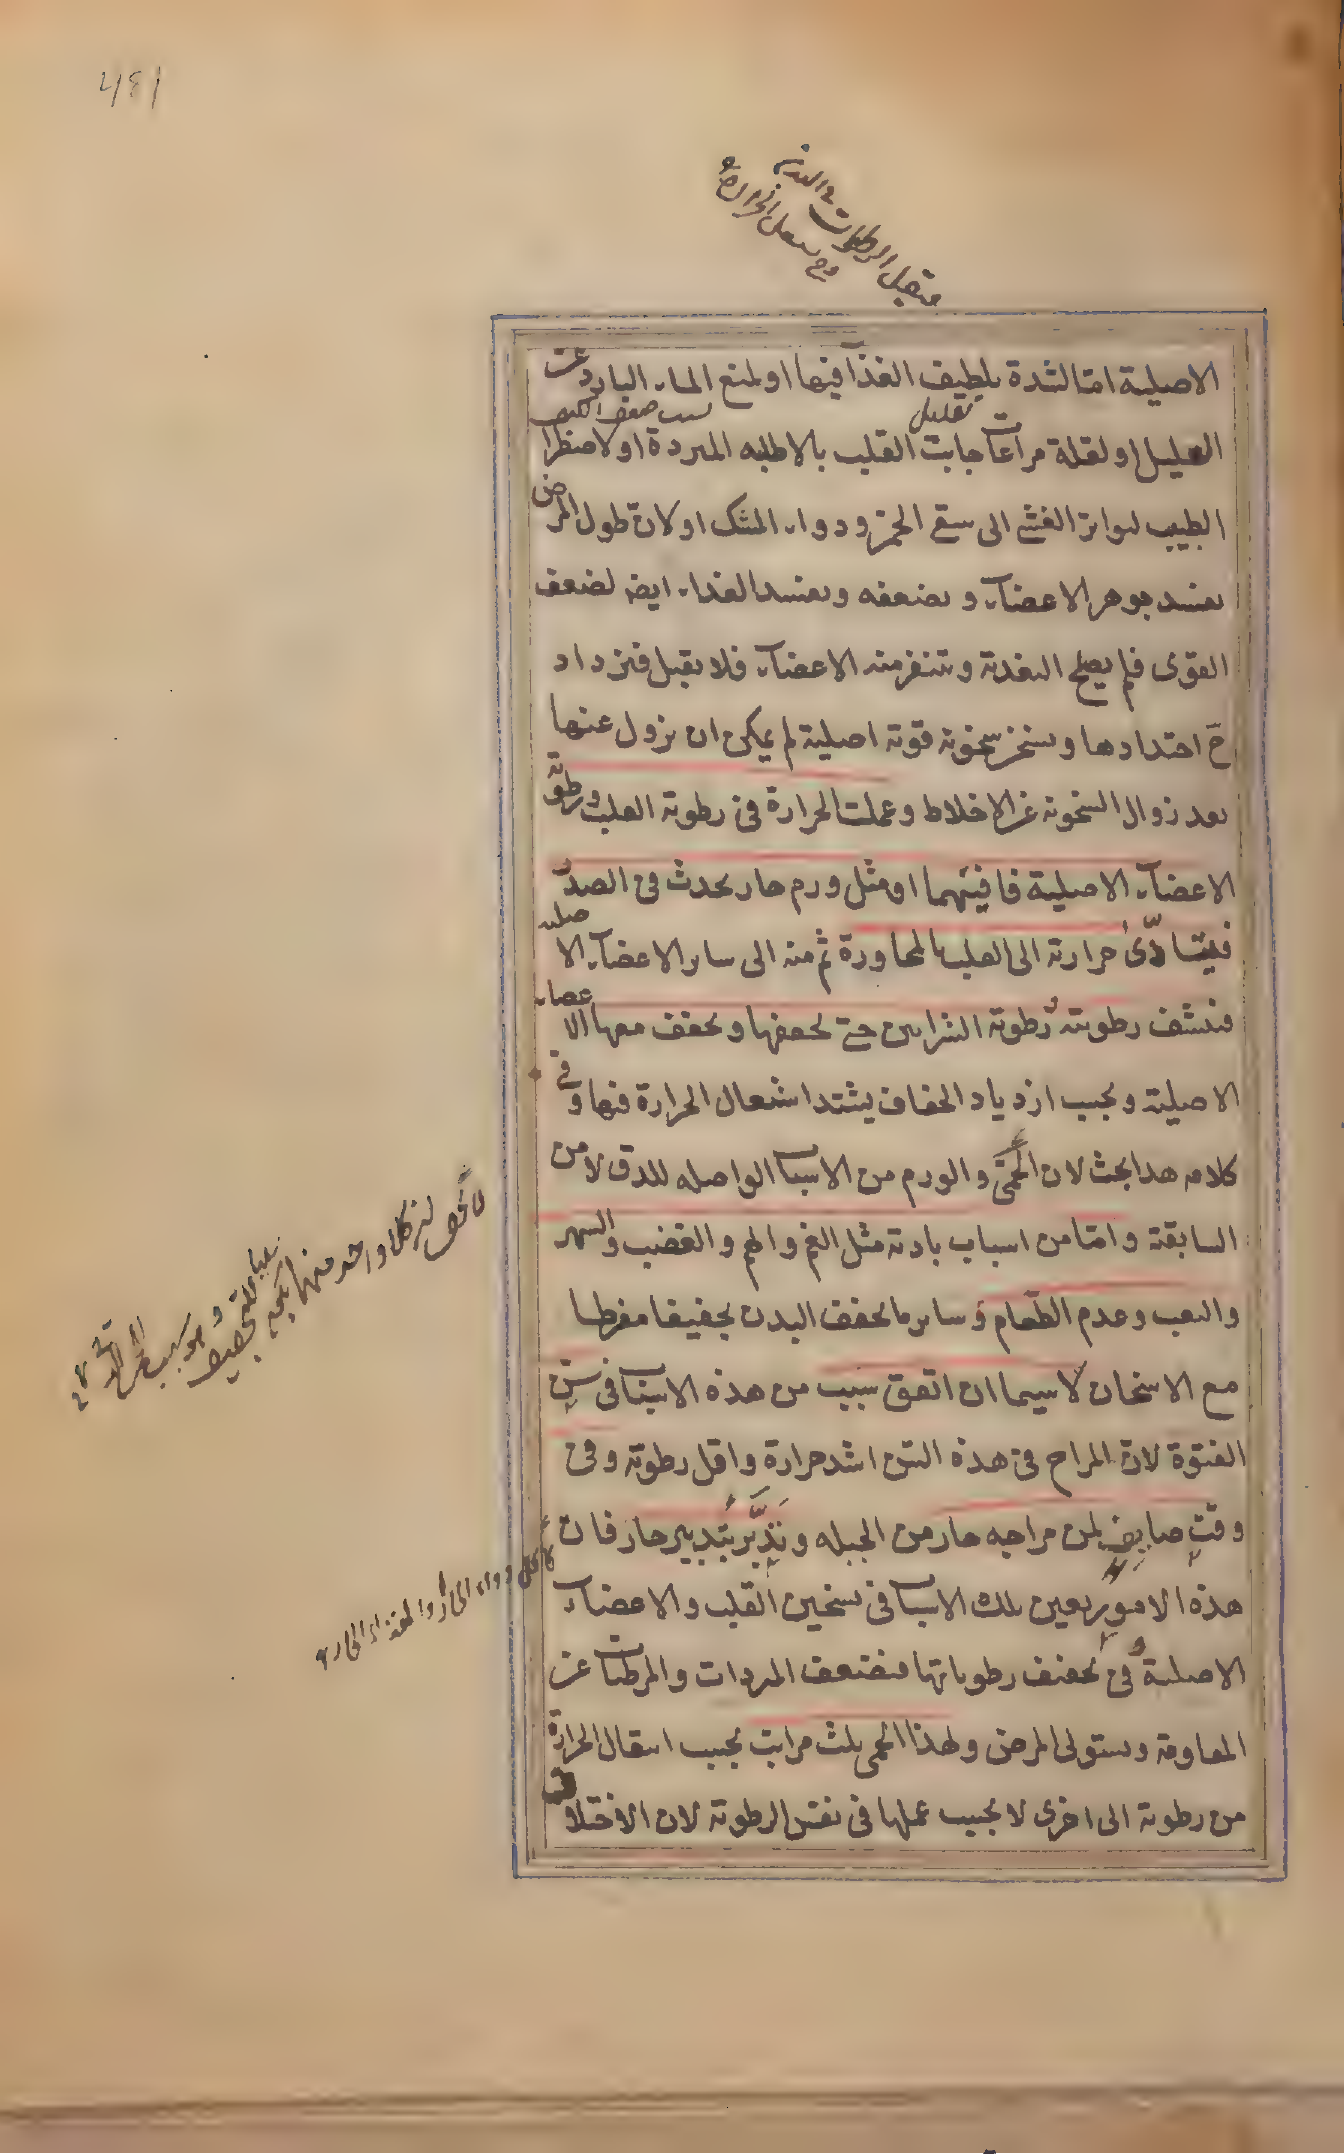 الاصلية اما لشدة تلطيف الغذآ فيها او لمنع الماء البارد عن
تقليل
العليل او لقلة مراعات جانب القلب بالاطلیه المبردة او لاضطرا
الطبيب لتواتر الغشى الى سقى الخمر و دواء المشك او لان طول المرض
يفسد جوهر الاعضآء و يضعفه و يفسد الغذاء ايض لضعف
القوى فلم يصلح التغذية و تتنفر منه الاعضآء فلا تقبل فيزداد
ح احتدادها و يسخن سخونة قوية اصلية لم يمكن ان يزول عنها
بعد زوال السخونة عن الاخلاط و عملت الحرارة فى رطوبة القلب و رطوبة
الاعضآء الاصلية فافنيتهما او مثل ورم حار يحدث فى الصدر
فيتادّى حرارته الى القلب بالمجاورة ثم منه الى ساير الاعضآء الاصلية
فينشف رطوبته رطوبة الشرايين حتى يجففها و يجفف معها الاعضاء
الاصلية و بحسب ازدياد الجفاف يشتد اشتعال الحرارة فيها و فى
كلامه هذا بحث لان الحمى و الورم من الاسباب الواصله للدق لا من
السابقة و اما من اسباب بادية مثل الغم و الهم و الغضب و السهر
و التعب و عدم الطعام و ساير ما يجفف البدن تجفيفا مفرطا
مع الاسخان لا سيما ان اتفق سبب من هذه الاسباب فى سنّ
الفتوة لان المزاج فى هذه السن اشد حرارة و اقل رطوبة و فى
وقتٍ صايفٍ لمن مزاجه حار من الجبله و تدبّر بتدبير حار فان
هذه الامور يعين تلك الاسباب فى تسخين القلب و الاعضآء
الاصلية و فى تجفيف رطوباتها فيضعف المبردات و المرطبات عن
المقاومة و يستولى المرض و لهذا الحمى ثلث مراتب بحسب انتقال الحرارة
من رطوبة الى اخرى لا بحسب عملها فى نفس الرطوبة لان الاختلاف